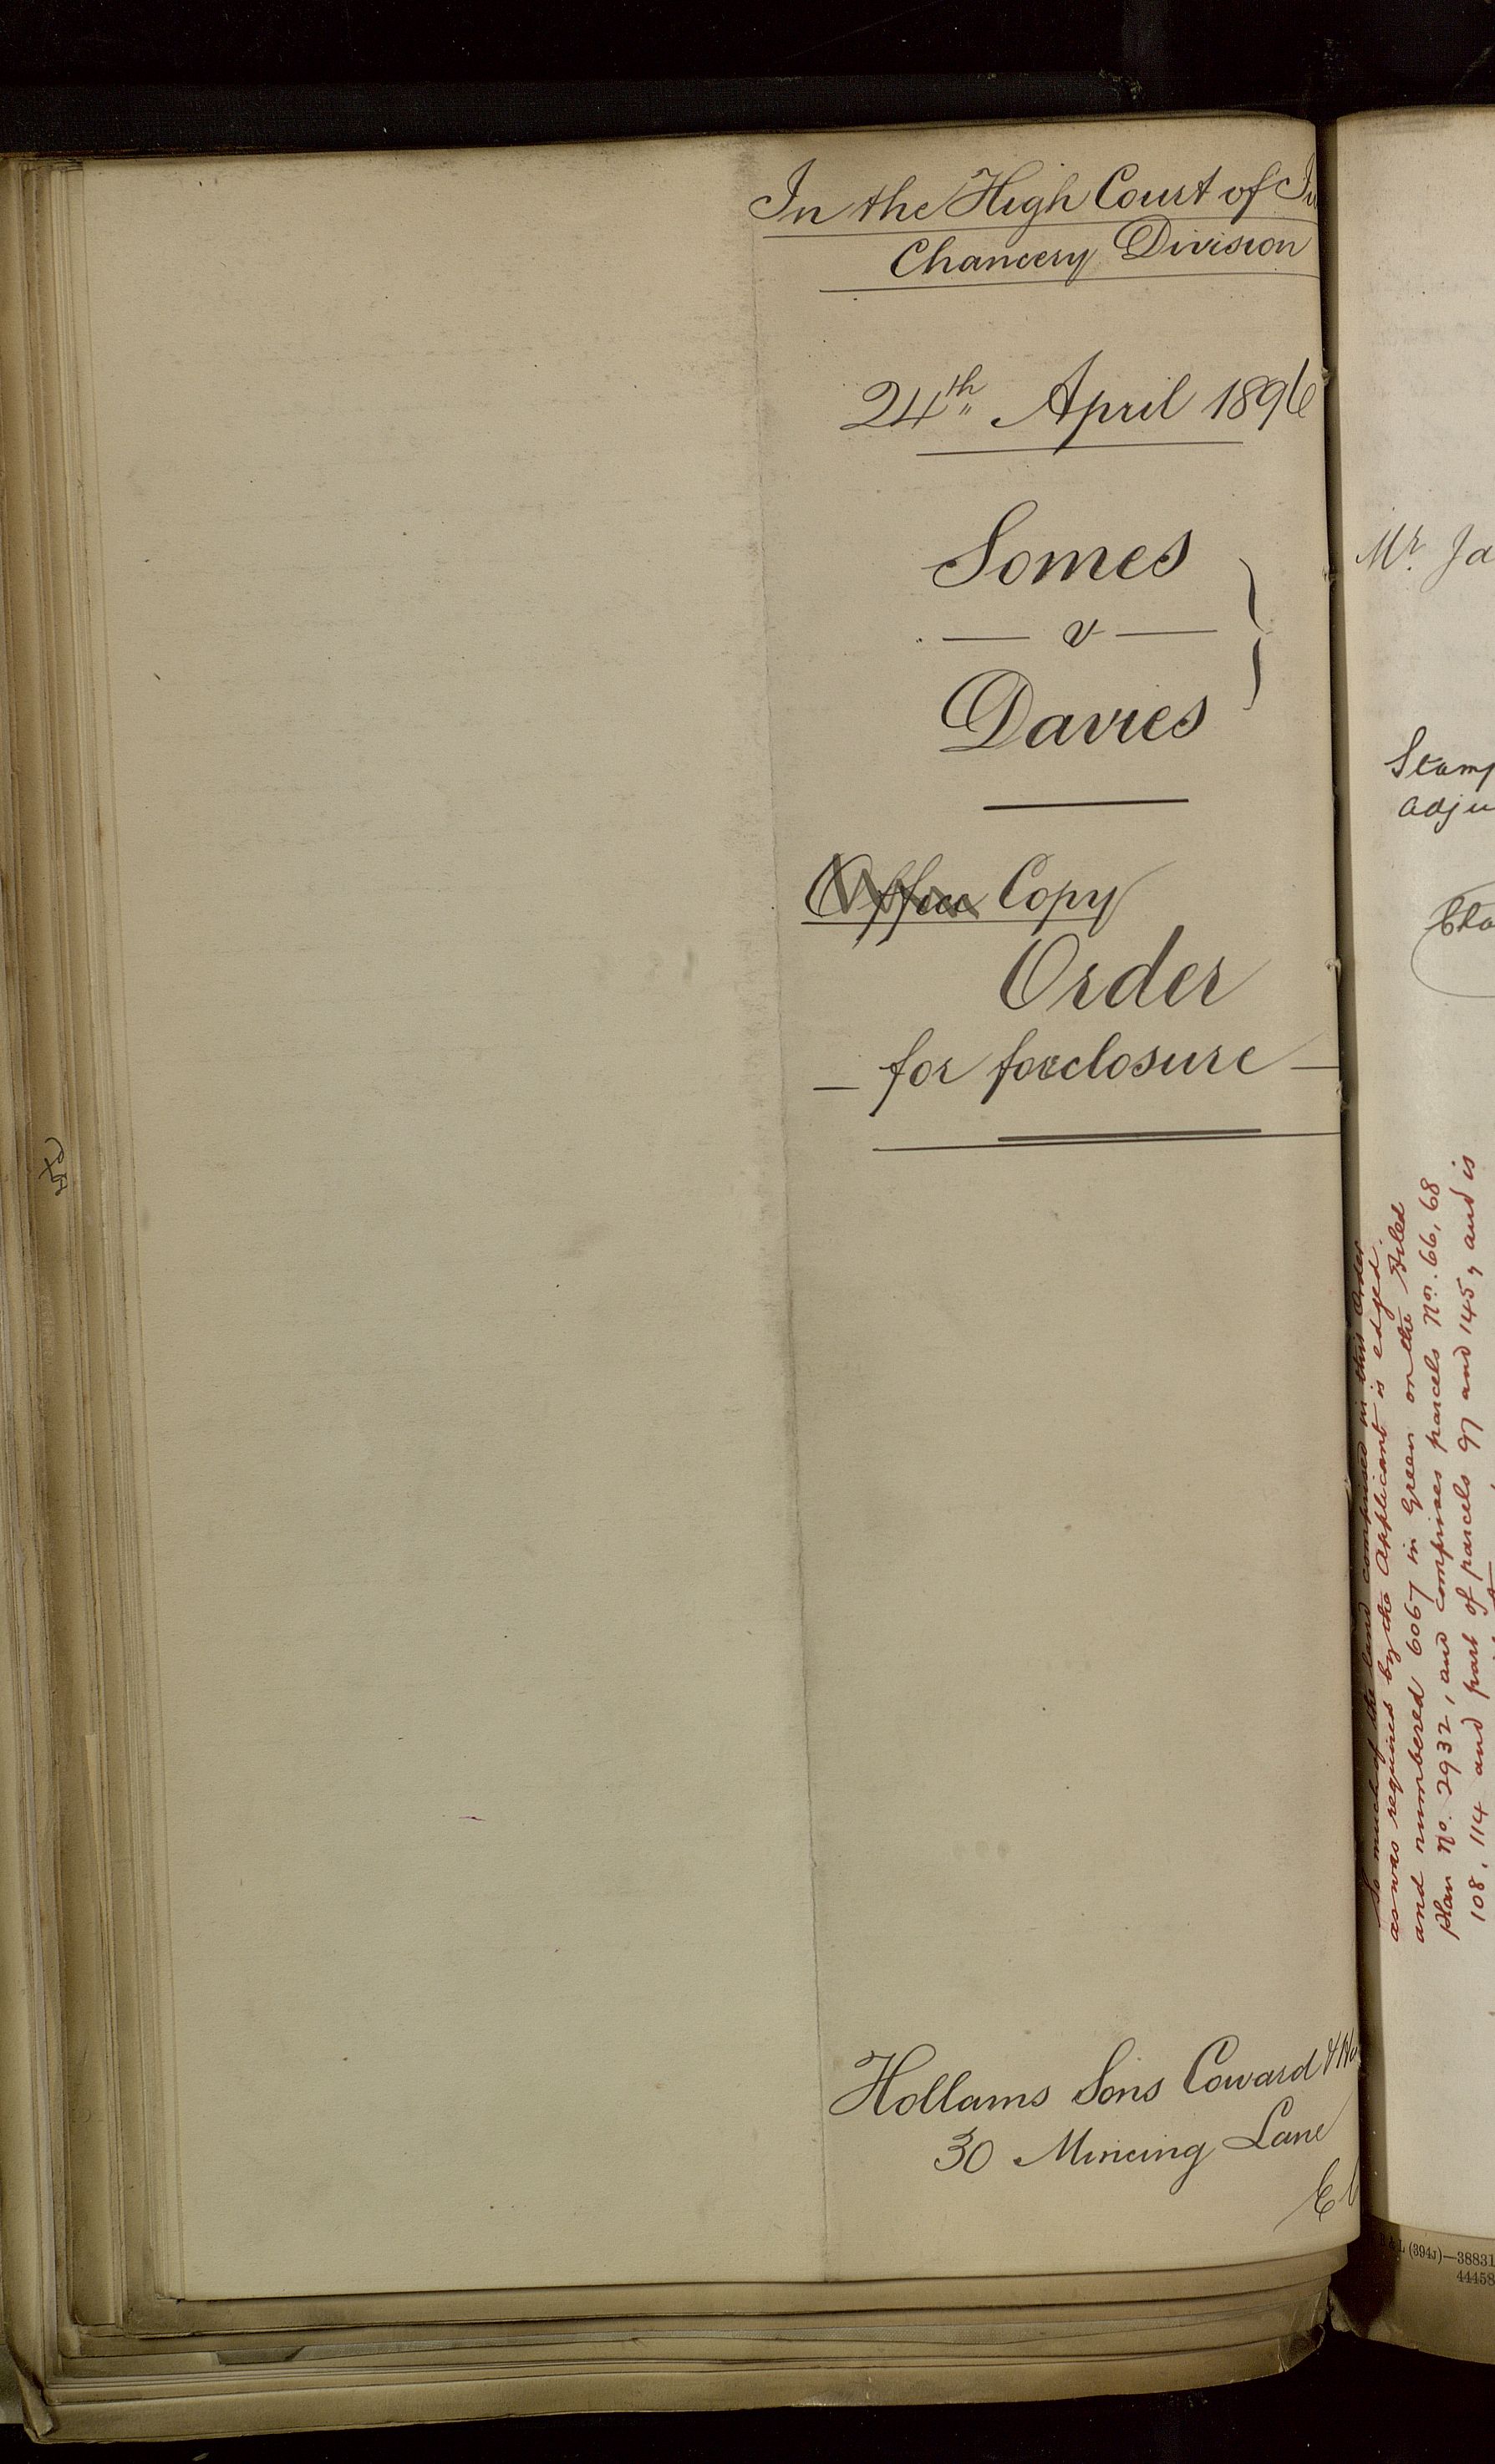 In the High Court of Ju
Chancery Division
24th April 1896
Somes
— v —
Davies
Office Copy
Order
— for foreclosure —
Hollams Sons Coward & Ha
30 Mincing Lane
E C
Mr. Ja
Stamp
adju
So much of the land comprised in this Order
as was required by the Applicant is edged
and numbered 6067 in Green on the Filed
Plan No. 2932, and comprises parcels Nos. 66, 68
108, 114 and part of parcels 97 and 145, and is
L (394J)—38831
44458